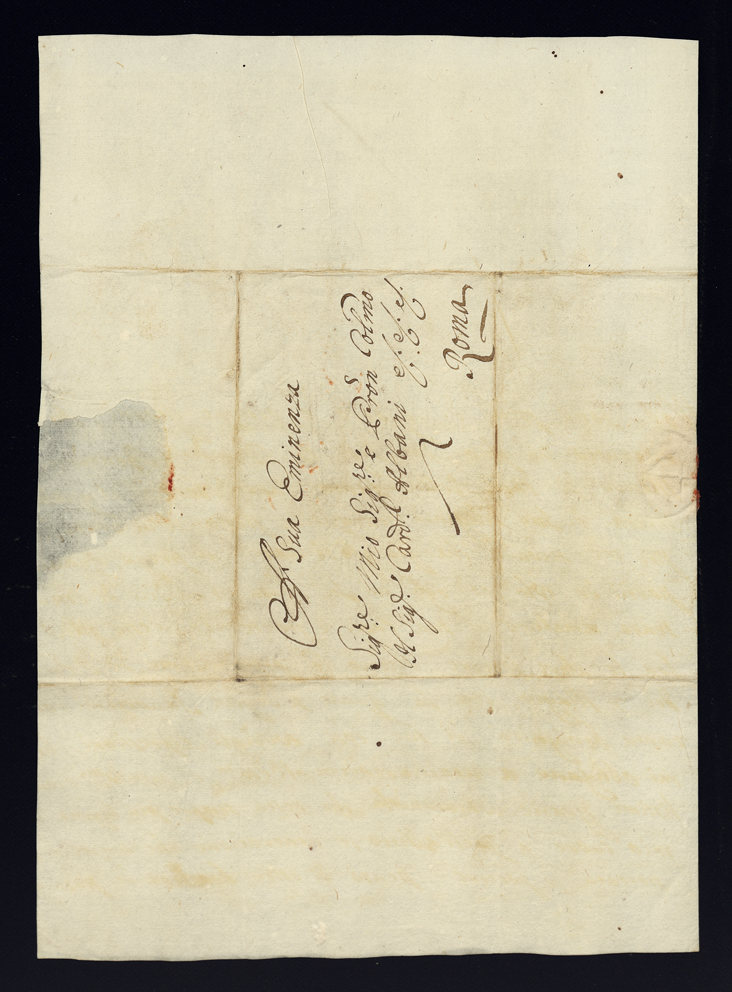 A Sua Eminenza
Sig.re Mio Sig.re e Pron Colmo
Il Sig.r Card.l Albani
Roma